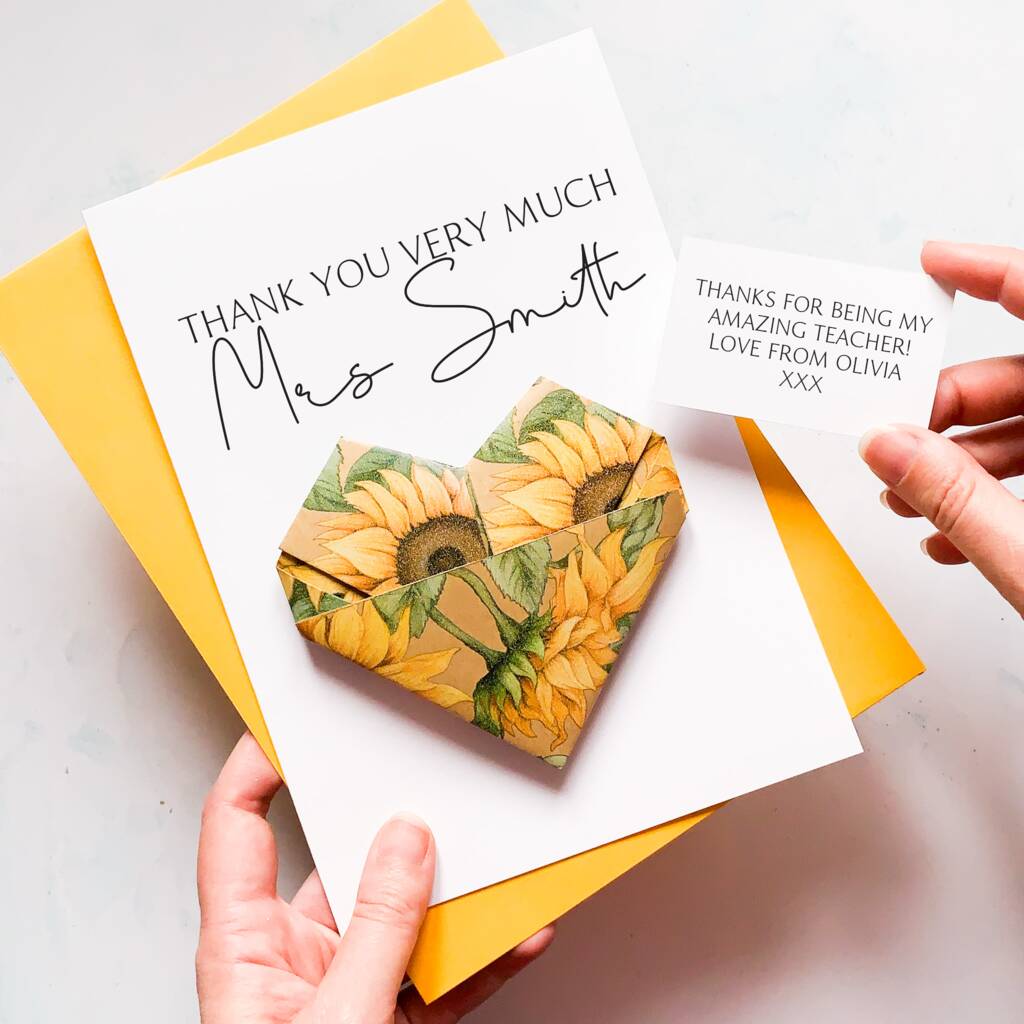 THANK YOU VERY MUCH
Mrs Smith
THANKS FOR BEING MY
AMAZING TEACHER!
LOVE FROM OLIVIA
XXX